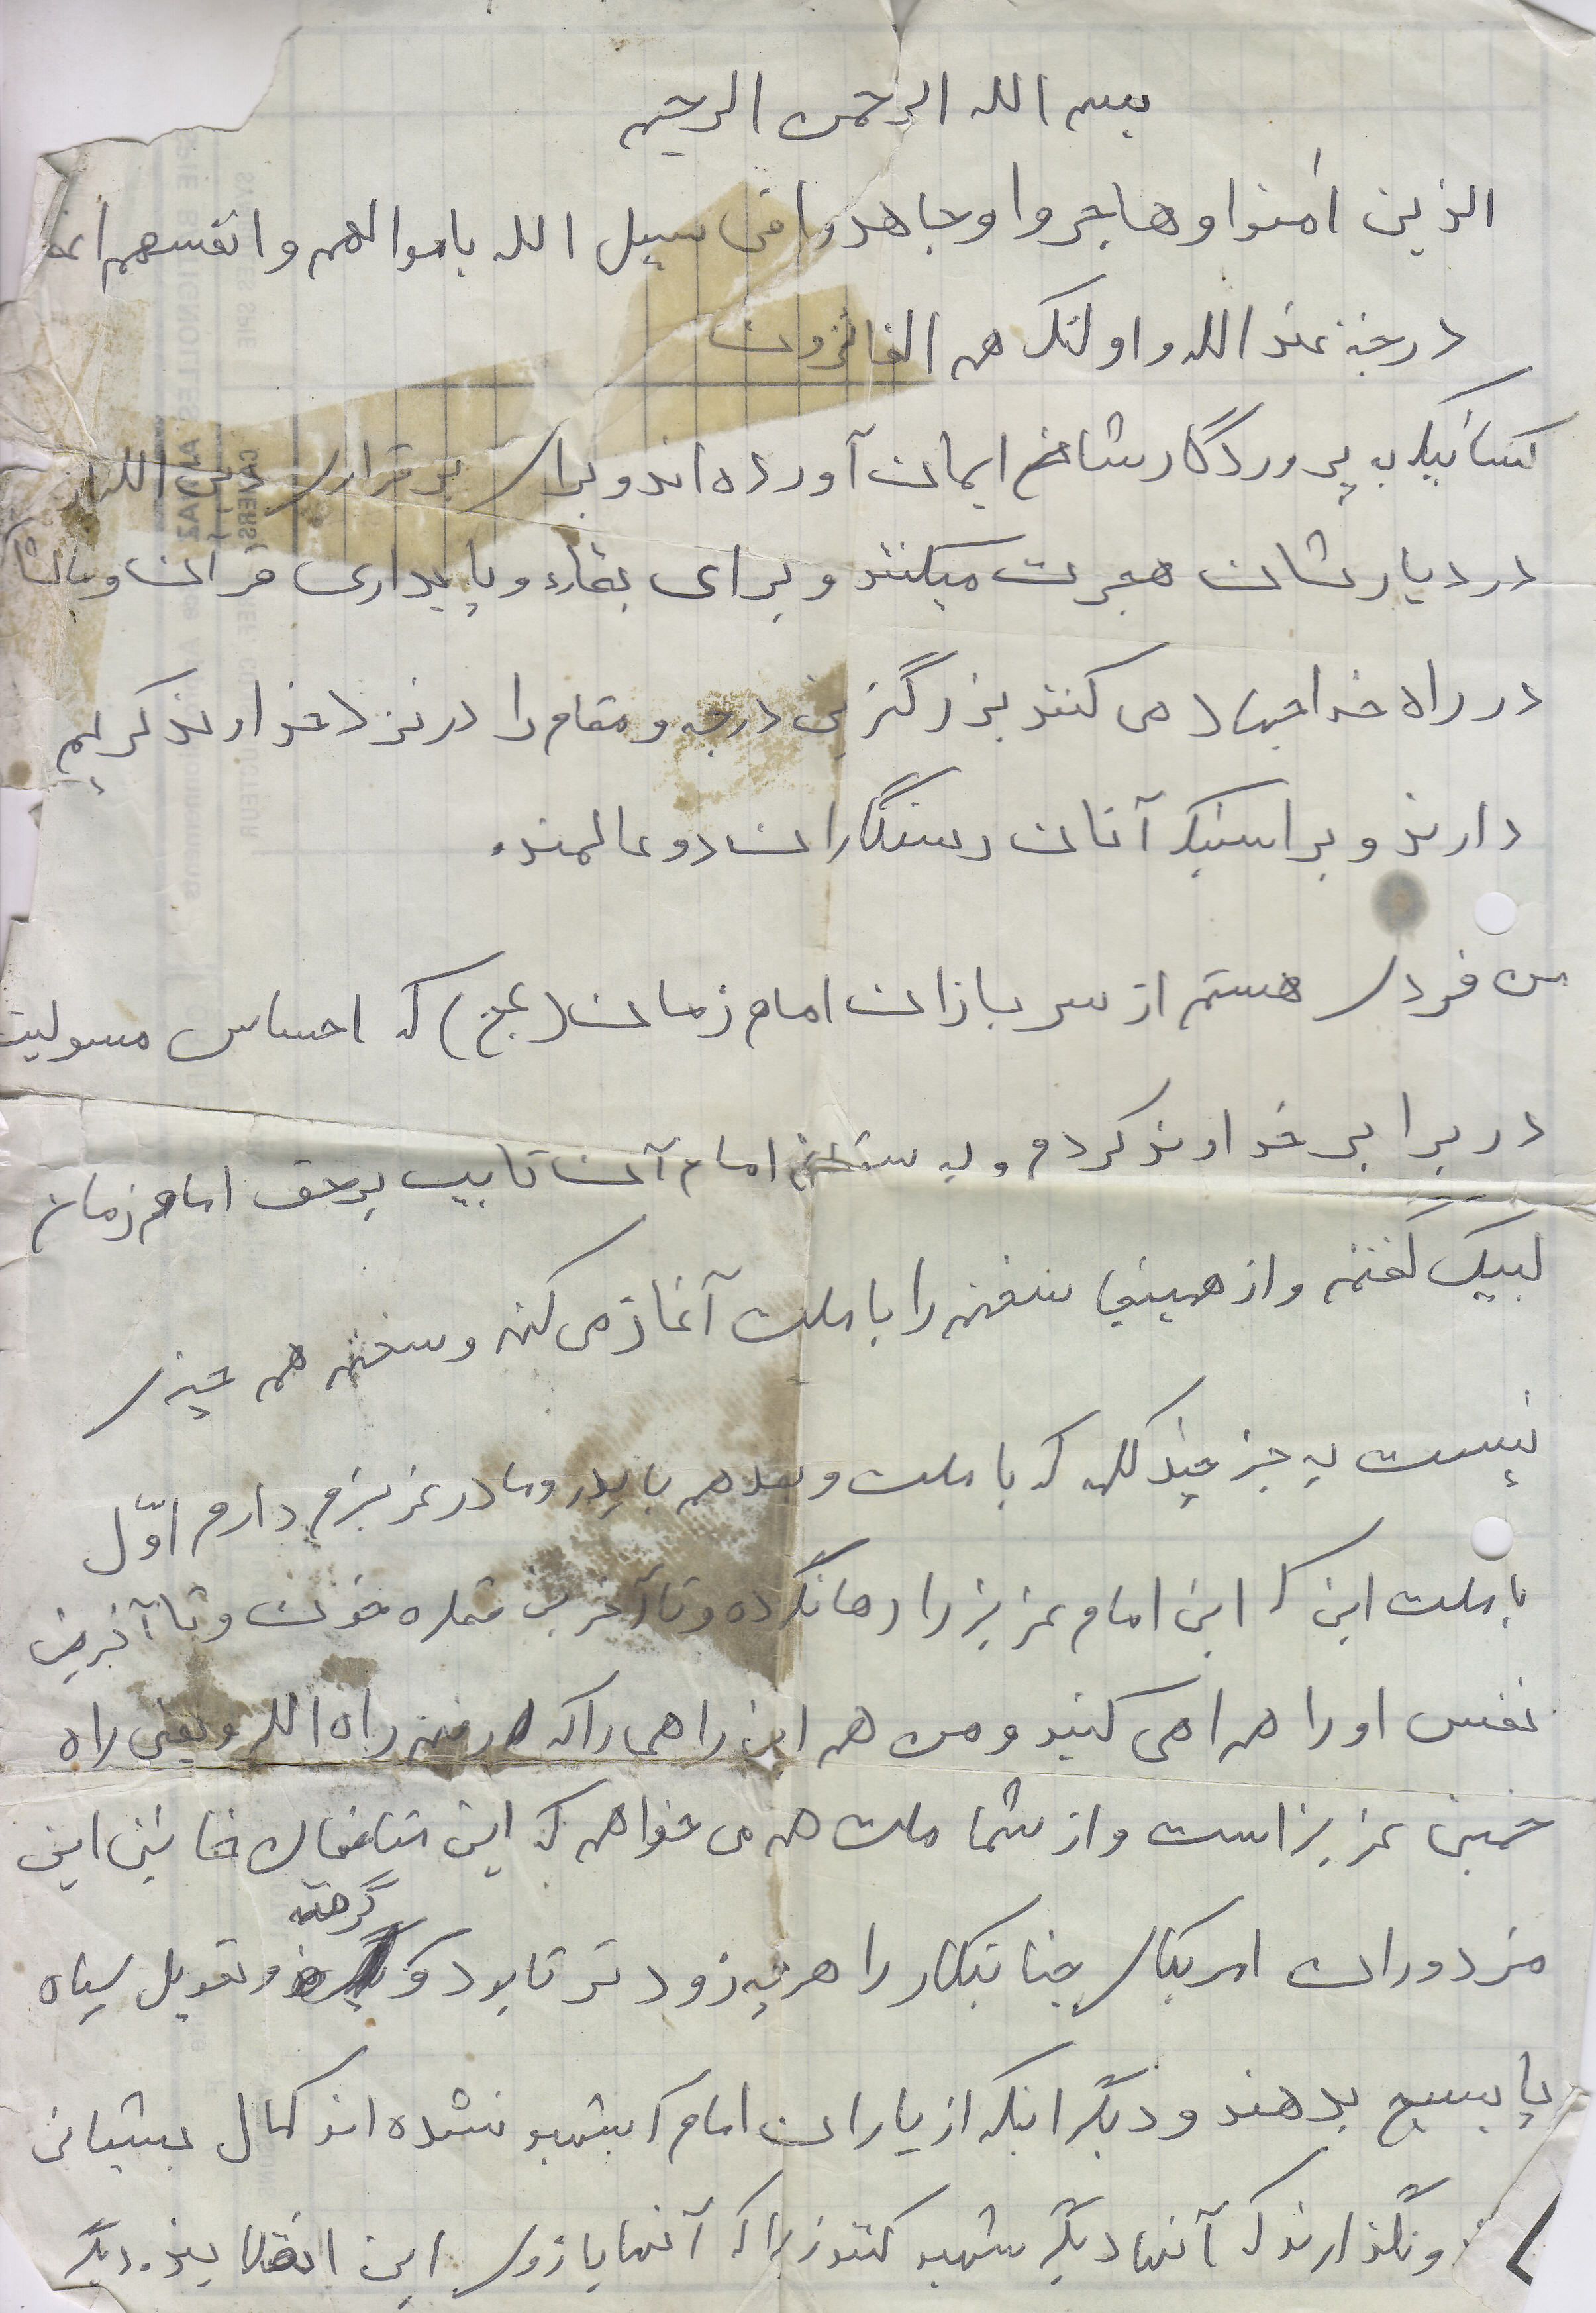 بسم الله الرحمن الرحیم
الذین اٰمنوا و هاجروا و جاهدوا فی سبیل الله باموالهم و انفسهم
درجة عند الله و اولئک هم الفائزون
کسانیکه به پروردگارشان ایمان آورده اند و برای برقراری دین الله
در دیارشان هجرت میکنند و برای بقاء و پایداری قرآن و
در راه خدا جهاد می کنند بزرگترین درجه و مقام را در نزد خداوند کریم
دارند و براستیکه آنان رستگاران دو عالمند.
من فردی هستم از سربازان امام زمان (عج) که احساس مسولیت
در برابر خداوند کردم و به سخن امام آن نایب برحق امام زمان
لبیک گفتم و از همینجا سخنم را با ملت آغاز می کنم و سخنم هم چیزی
نیست به جز چند کلمه که با ملت و بعد هم با پدر و مادر عزیزم دارم اوّل
با ملت این که این امام عزیز را رها نکرده و تا آخرین قطره خون و تا آخرین
نفس او را همراهی کنید و من هم این راهی را که رفتم راه الله و یعنی راه
خمینی عزیز است و از شما ملت هم می خواهم که این منافقان خائن این
مزدوران امریکای جنایتکار را هر چه زودتر نابود و گرفته و تحویل سپاه
یا بسیج بدهند و دیگر اینکه از یاران امام که شهید نشده اند کمال پشتیبانی
و نگذارند که آنها دیگر شهید کنند زیرا که آنها بازوی این انقلابیند. دیگر